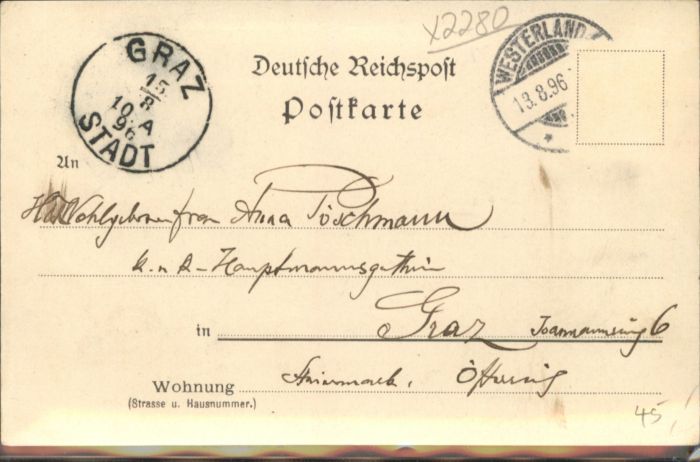 x2280
GRAZ
15
8
10 A
96
STADT
WESTERLAND
13.8.96
Deutsche Reichspost
Postkarte
An
Wohlgeboren Frau Anna Pöschmann
k. u. k. Hauptmannsgattin
in Graz Joanneumring 6
Steiermark.
Wohnung
(Strasse u. Hausnummer.)
45